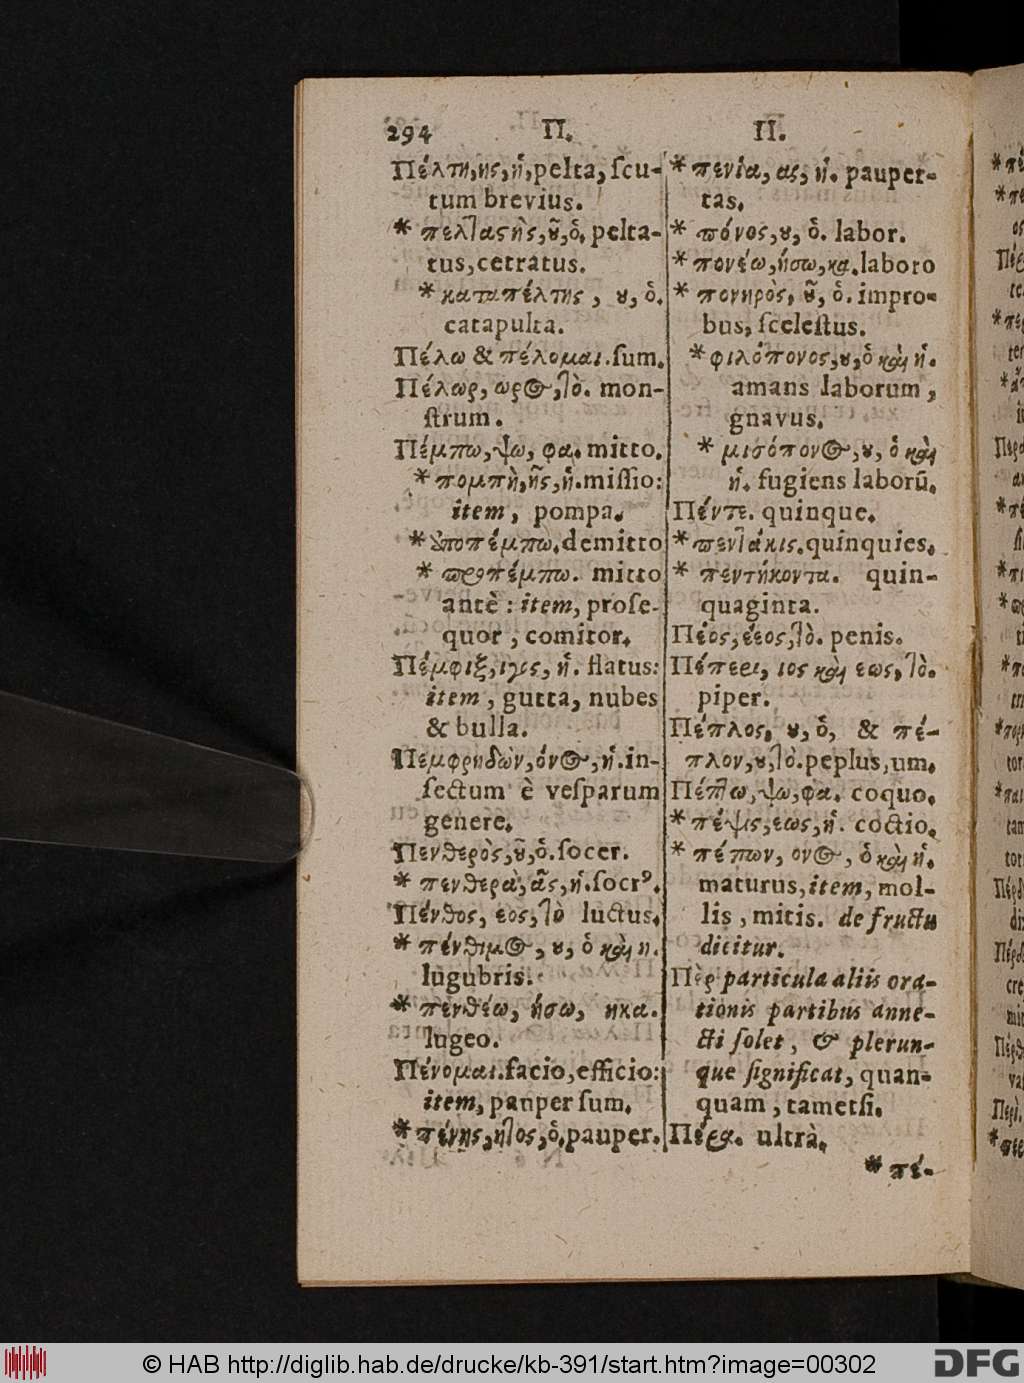 294 Π. Π.
Πέλτη,ης,ἡ,pelta, ſcu-
tum brevius.
* πελταςὴς,ȣ͂,ὁ. pelta-
tus,cetratus.
* καταπέλτης, ȣ, ὁ.
catapulta.
Πέλω & πέλομαι.ſum.
Πέλωρ, ωρος,τὸ. mon-
ſtrum.
Πέμπω,ψω, φα. mitto.
* πομπὴ,ῆς,ἡ.miſſio:
item, pompa.
* ὑποπέμπω.demitto
* προπέμπω. mitto
antè: item, proſe-
quor, comitor.
Πέμφιξ,ιγος, ἡ. flatus:
item, gutta, nubes
& bulla.
Πεμφρηδὼν,όνος,ἡ.in-
ſectum è veſparum
genere.
Πενθερὸς,ȣ͂,ὁ.ſocer.
* πενθερὰ,ᾶς,ἡ.ſocrꝰ.
Πένθος, εος,τὸ luctus.
* πένθιμος, ȣ, ὁ καὶ ἡ.
lugubris.
* πενθέω, ήσω, ηκα.
lugeo.
Πένομαι.facio,efficio:
item, pauper ſum.
* πένης,ητος,ὁ.pauper.
* πενία, ας, ἡ. pauper-
tas.
* πόνος,ȣ, ὁ. labor.
* πονέω,ήσω,κα.laboro
* πονηρὸς, ȣ͂, ὁ. impro-
bus, ſceleſtus.
* φιλόπονος,ȣ,ὁ καὶ ἡ.
amans laborum,
gnavus.
* μισόπονος,ȣ, ὁ καὶ
ἡ. fugiens laborũ.
Πέντε. quinque.
* πεντάκις.quinquies.
* πεντήκοντα. quin-
quaginta.
Πέος,έεος,τὸ. penis.
Πέπερι, ιος καὶ εως,τὸ.
piper.
Πέπλος, ȣ, ὁ, & πέ-
πλον,ȣ,τὸ.peplus,um.
Πέπτω,ψω,φα. coquo.
* πέψις,εως,ἡ. coctio.
* πέπων, ονος, ὁ καὶ ἡ.
maturus,item, mol-
lis, mitis. de fructu
dicitur.
Πὲρ particula aliis ora-
tionis partibus anne-
cti ſolet, & plerun-
que ſignificat, quan-
quam, tametſi.
Πέρα. ultrà.
* πέ-
© HAB http://diglib.hab.de/drucke/kb-391/start.htm?image=00302
DFG